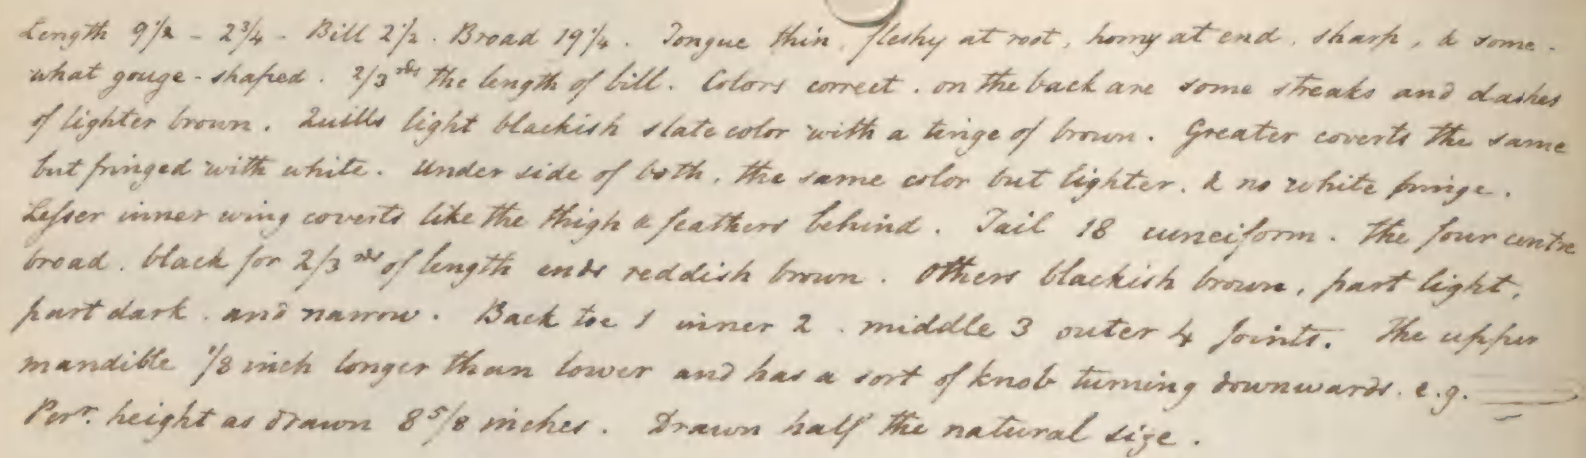 Length 9 1/2 - 2 3/4 - Bill 2 1/2. Broad 19 1/4. Tongue thin, fleshy at root, horny at end, sharp, & some-
what gouge-shaped. 2/3rds the length of bill. Colors correct. on the back are some streaks and dashes
of lighter brown. Quills light blackish slate color with a tinge of brown. Greater coverts the same
but fringed with white. Under side of both, the same color but lighter, & no white fringe.
Lesser inner wing coverts like the thigh & feathers behind. Tail 18 cuneiform. The four centre
broad. black for 2/3rds of length ends reddish brown. Others blackish brown, part light,
part dark. and narrow. Back toe 1 inner 2. middle 3 outer 4 joints. The upper
mandible 1/8 inch longer than lower and has a sort of knob turning downwards. e.g.
Perr. height as drawn 8 5/8 inches. Drawn half the natural size.